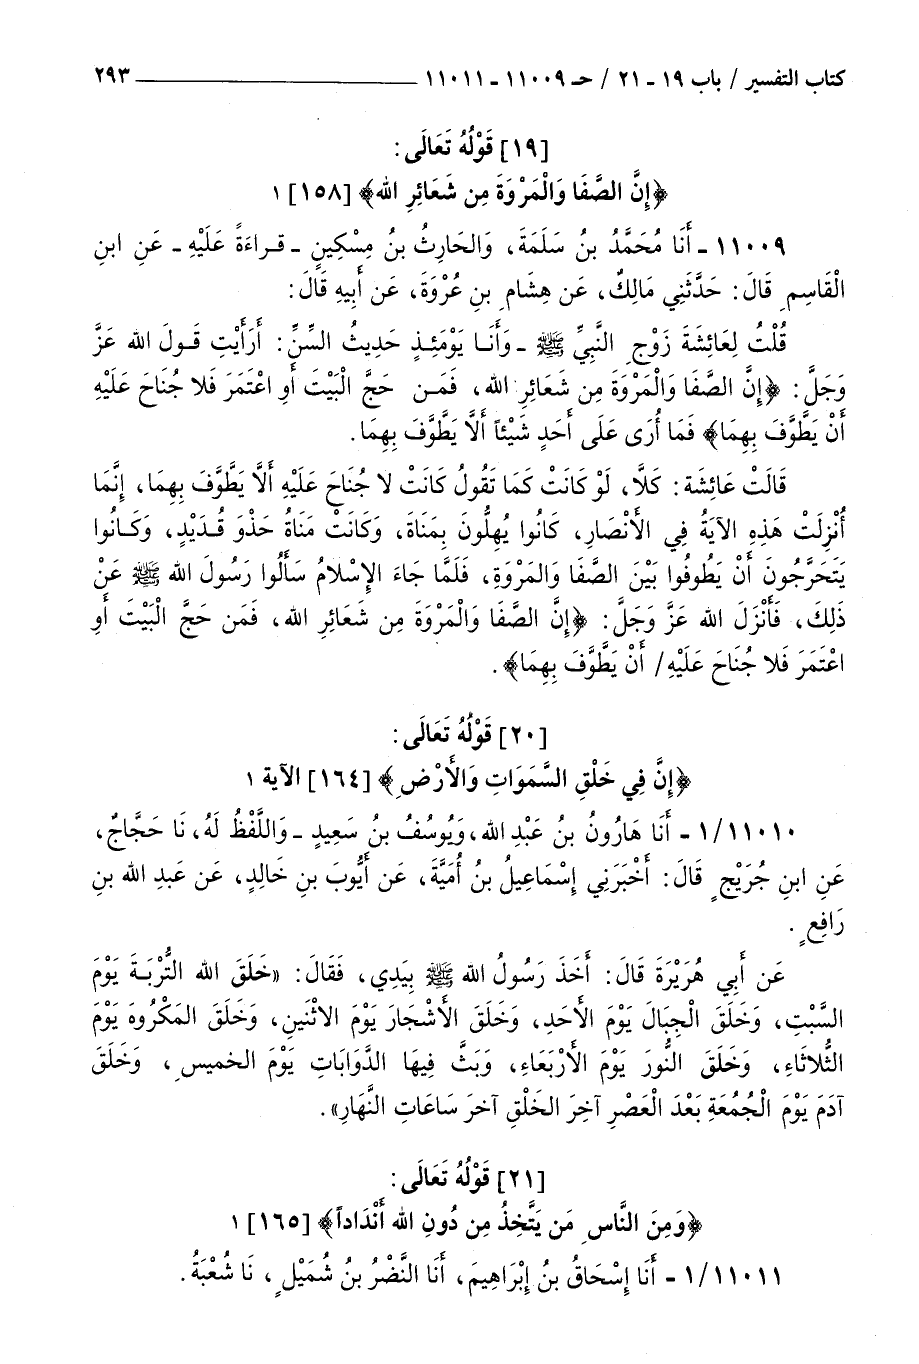 كتاب التفسير / باب ١٩ ـ ٢١ / حـ ١١٠٠٩ ـ ١١٠١١ ٢٩٣
[١٩] قَوْلُهُ تَعَالَى:
﴿إِنَّ الصَّفَا وَالْمَرْوَةَ مِن شَعَائِرِ الله﴾ [١٥٨] ١
١١٠٠٩ ـ أَنَا مُحَمَّدُ بنُ سَلَمَةَ، وَالحَارِثُ بنُ مِسْكِينٍ ـ قـراءَةً عَلَيْهِ ـ عَنِ ابنِ
الْقَاسِمِ قَالَ: حَدَّثَنِي مَالِكٌ، عَن هِشَامِ بنِ عُرْوَةَ، عَن أَبِيهِ قَالَ:
قُلْتُ لِعَائِشَةَ زَوْجِ النَّبِيِّ ﷺ ـ وَأَنَـا يَوْمَئِـذٍ حَدِيثُ السِّنِّ: أَرَأَيْتِ قَـولَ الله عَزَّ
وَجَلَّ: ﴿إِنَّ الصَّفَا وَالْمَرْوَةَ مِن شَعَائِرِ الله، فَمَـن حَجَّ الْبَيْتَ أَوِ اعْتَمَرَ فَلا جُنَاحَ عَلَيْهِ
أَنْ يَطَّوَّفَ بِهِمَا﴾ فَمَا أُرَى عَلَى أَحَدٍ شَيْئاً أَلاَّ يَطَّوَّفَ بِهِمَا.
قَالَتْ عَائِشَة: كَلَّا، لَوْ كَانَتْ كَمَا تَقُولُ كَانَتْ لا جُنَاحَ عَلَيْهِ أَلاَّ يَطَّوَّفَ بِهِمَا، إِنَّمَا
أُنْزِلَتْ هَذِهِ الآيَةُ فِي الأَنْصَارِ، كَانُوا يُهِلُّونَ بِمَنَاةَ، وَكَانَتْ مَنَاةُ حَذْوَ قُـدَيْدٍ، وَكَـانُوا
يَتَحَرَّجُونَ أَنْ يَطُوفُوا بَيْنَ الصَّفَا وَالمَرْوَةِ، فَلَمَّا جَاءَ الإِسْلامُ سَأَلُوا رَسُولَ الله ﷺ عَنْ
ذَلِكَ، فَأَنْزَلَ الله عَزَّ وَجَلَّ: ﴿إِنَّ الصَّفَا وَالْمَرْوَةَ مِن شَعَائِرِ الله، فَمَن حَجَّ الْبَيْتَ أَوِ
اعْتَمَرَ فَلا جُنَاحَ عَلَيْهِ/ أَنْ يَطَّوَّفَ بِهِمَا﴾.
[٢٠] قَوْلُهُ تَعَالَى:
﴿إِنَّ فِي خَلْقِ السَّمَوَاتِ وَالأَرْضِ﴾ [١٦٤] الآية ١
١/١١٠١٠ ـ أَنَا هَارُونُ بنُ عَبْدِ الله، وَيُوسُفُ بنُ سَعِيدٍ ـ وَاللَّفْظُ لَهُ، نَا حَجَّاجٌ،
عَنِ ابنِ جُرَيْجٍ قَالَ: أَخْبَرَنِي إِسْمَاعِيلُ بنُ أُمَيَّةَ، عَن أَيُّوبَ بنِ خَالِدٍ، عَن عَبدِ الله بنِ
رَافِعٍ.
عَن أَبِي هُرَيْرَةَ قَالَ: أَخَذَ رَسُولُ الله ﷺ بِيَدِي، فَقَالَ: «خَلَقَ الله التُّرْبَـةَ يَوْمَ
السَّبْتِ، وَخَلَقَ الْجِبَالَ يَوْمَ الأَحَدِ، وَخَلَقَ الأَشْجَارَ يَوْمَ الاثْنَينِ، وَخَلَقَ المَكْرُوهَ يَوْمَ
الثُّلاثَاءِ، وَخَلَقَ النُّورَ يَوْمَ الأَرْبَعَاءِ، وَبَثَّ فِيهَا الدَّوَابَاتِ يَوْمَ الخَمِيسِ، وَخَلَقَ
آدَمَ يَوْمَ الْجُمُعَةِ بَعْدَ الْعَصْرِ آخِرَ الخَلْقِ آخِرَ سَاعَاتِ النَّهَارِ».
[٢١] قَوْلُهُ تَعَالَى:
﴿وَمِنَ النَّاسِ مَن يَتَّخِذُ مِن دُونِ الله أَنْدَاداً﴾ [١٦٥] ١
١/١١٠١١ ـ أَنَا إِسْحَاقُ بنُ إِبْرَاهِيمَ، أَنَا النَّضْرُ بنُ شُمَيْلٍ، نَا شُعْبَةُ.